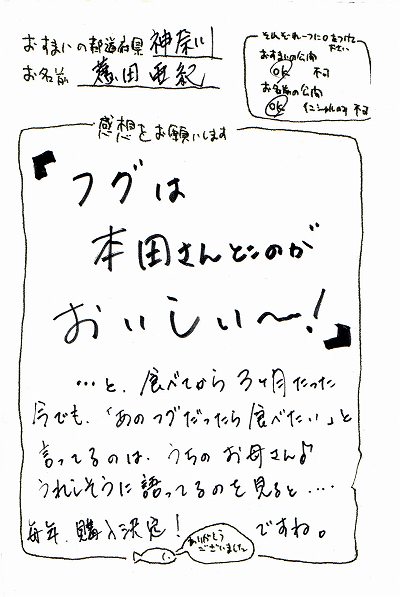 おすまいの都道府県 神奈川
お名前 亜紀
それぞれ一つに○をつけて
ください
おすまいの公開
OK 不可
お名前の公開
OK イニシャルのみ 不可
感想をお願いします
『フグは
本田さんとこのが
おいしい〜!』
…と、食べてから 3ヶ月たった
今でも、「あのフグだったら食べたい」と
言ってるのは、うちのお母さん♪
うれしそうに語ってるのを見ると…
毎年、購入決定! ですね。
ありがとう
ございました